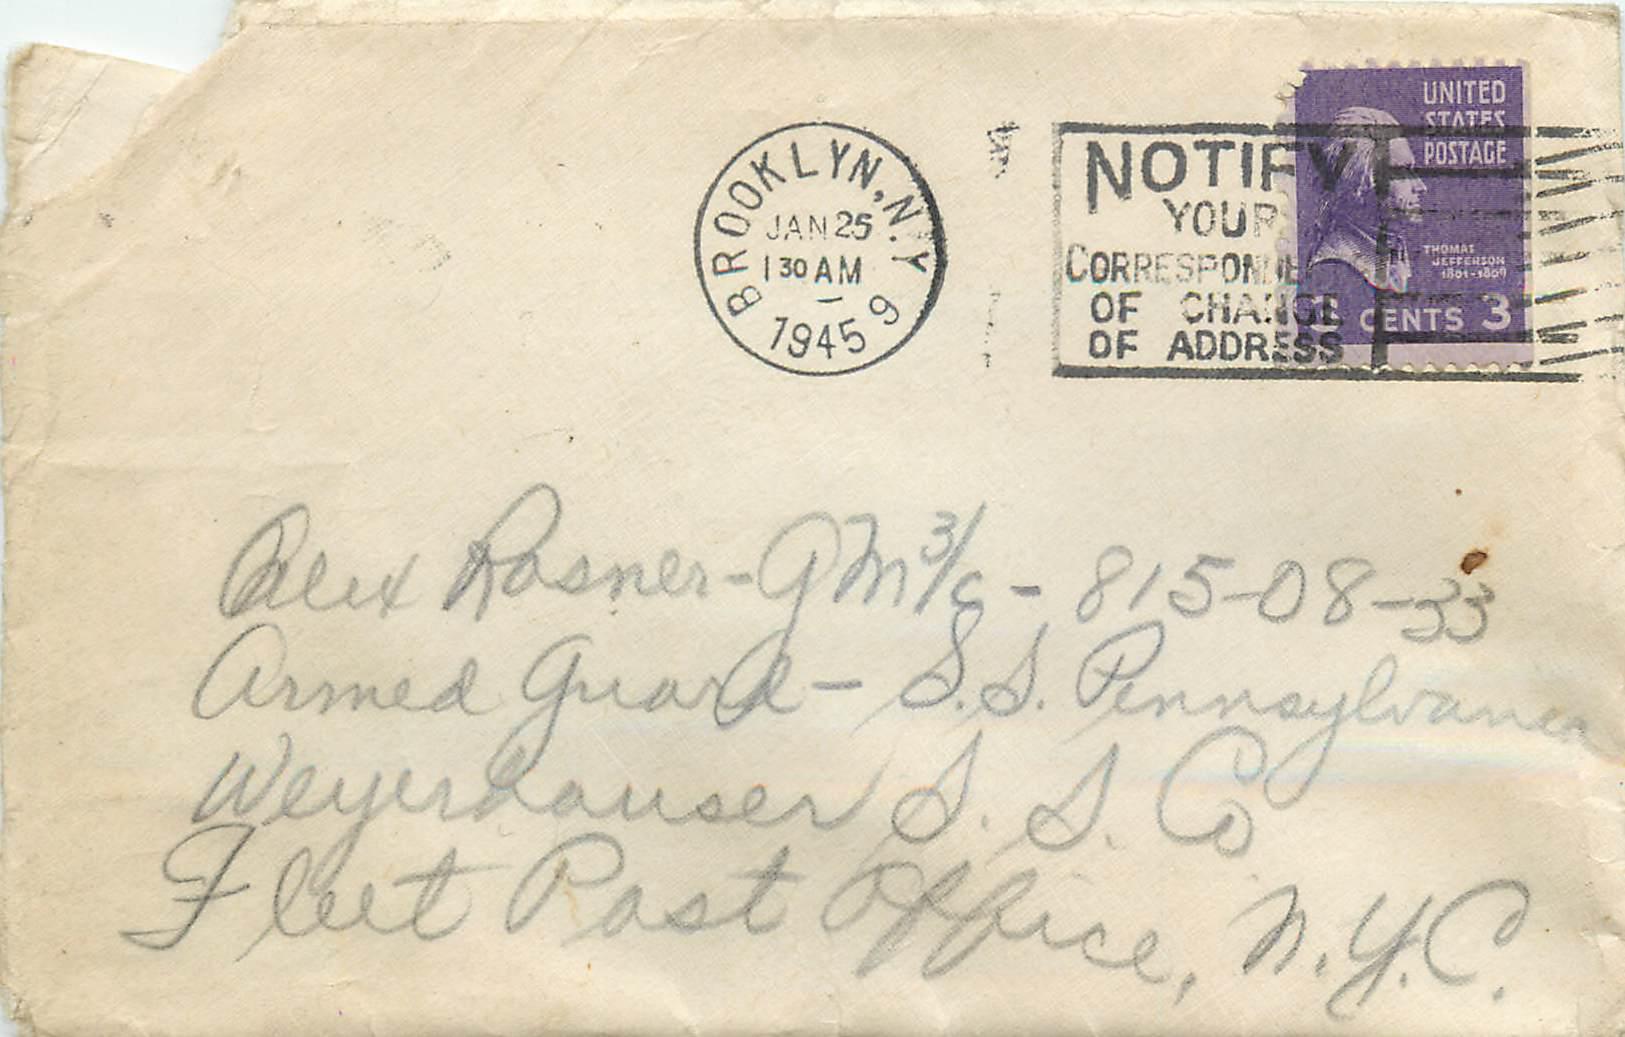 BROOKLYN, N.Y.
JAN 25
1 30 AM
1945 9
NOTIFY
YOUR
CORRESPONDE
OF CHANGE
OF ADDRESS
UNITED
STATES
POSTAGE
THOMAS
JEFFERSON
1801-1809
3 CENTS 3
Alex Rosner - GM 3/c - 815-08-33
Armed Guard - S.S. Pennsylvania
Weyerhauser S. S. Co
Fleet Post Office, N.Y.C.